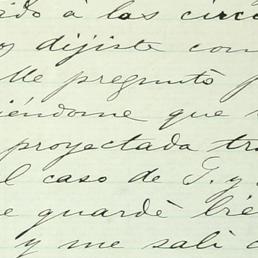 ido à las circ
dijiste con
Me pregunto p
iéndome que
proyectada tra
l caso de T. y
e guardè bie
y me salì